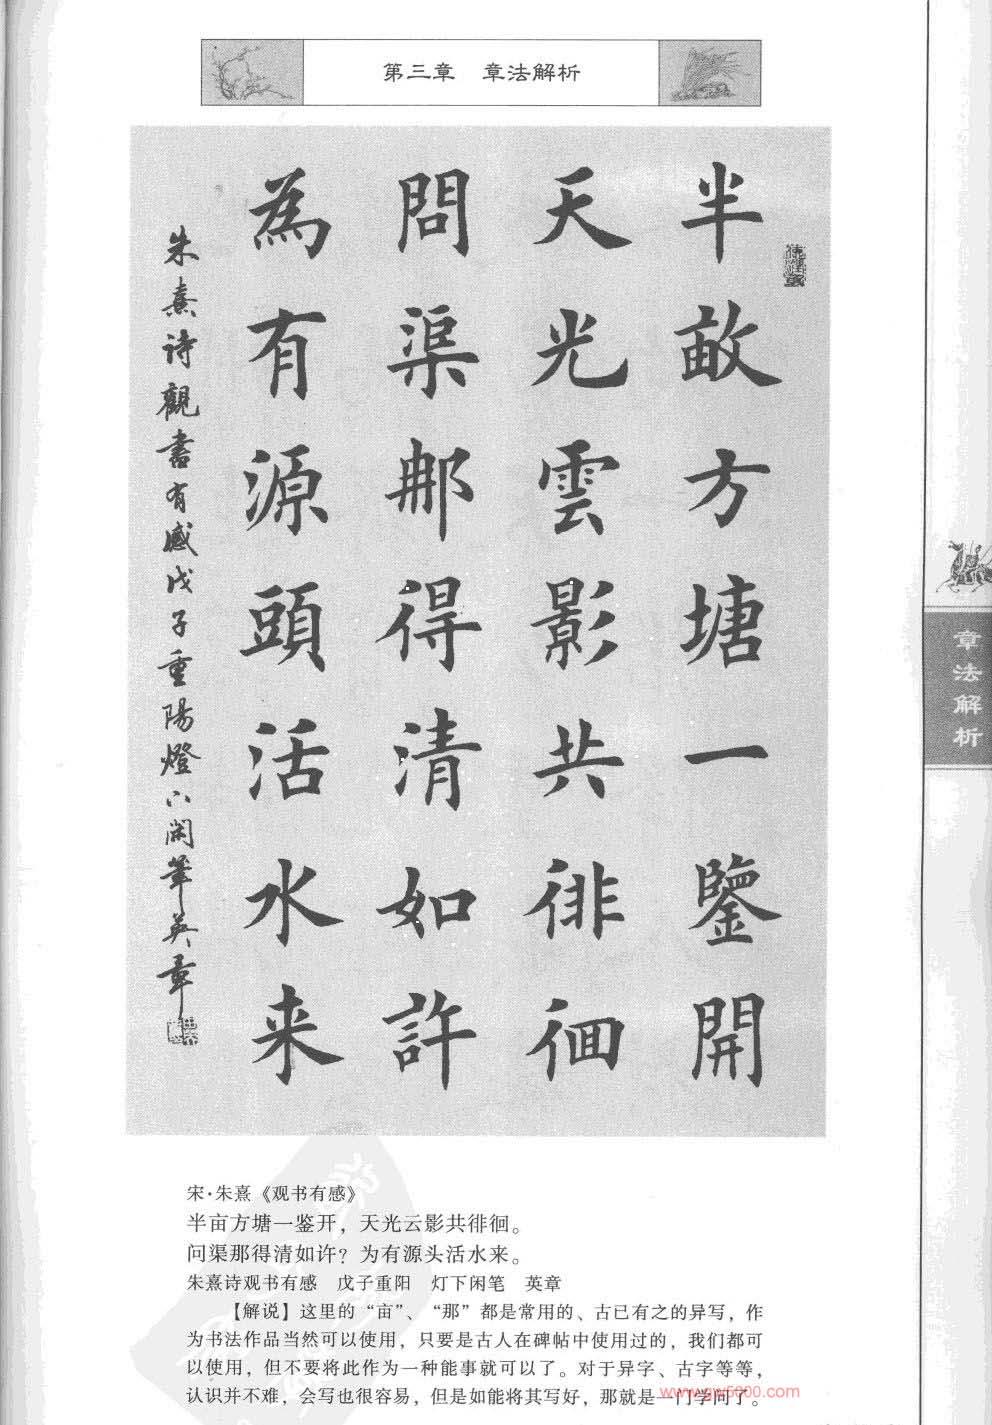 第三章 章法解析
半畝方塘一鑒開
天光雲影共徘徊
問渠那得清如許
為有源頭活水来
朱熹诗觀書有感戊子重陽燈下闲筆英章
章法解析
宋·朱熹《观书有感》
半亩方塘一鉴开，天光云影共徘徊。
问渠那得清如许？为有源头活水来。
朱熹诗观书有感 戊子重阳 灯下闲笔 英章
【解说】这里的“亩”、“那”都是常用的、古已有之的异写，作
为书法作品当然可以使用，只要是古人在碑帖中使用过的，我们都可
以使用，但不要将此作为一种能事就可以了。对于异字、古字等等，
认识并不难，会写也很容易，但是如能将其写好，那就是一门学问了。